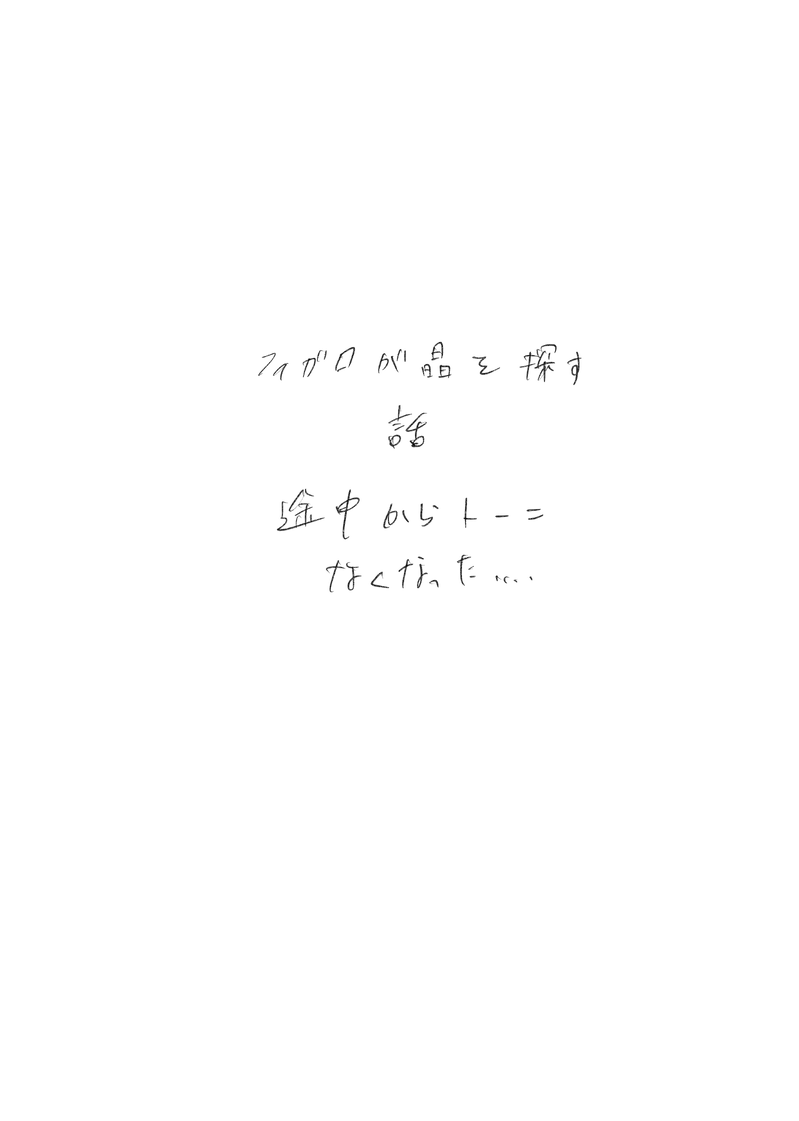 フィガロが晶を探す
話
途中からトーニ
なくなった....